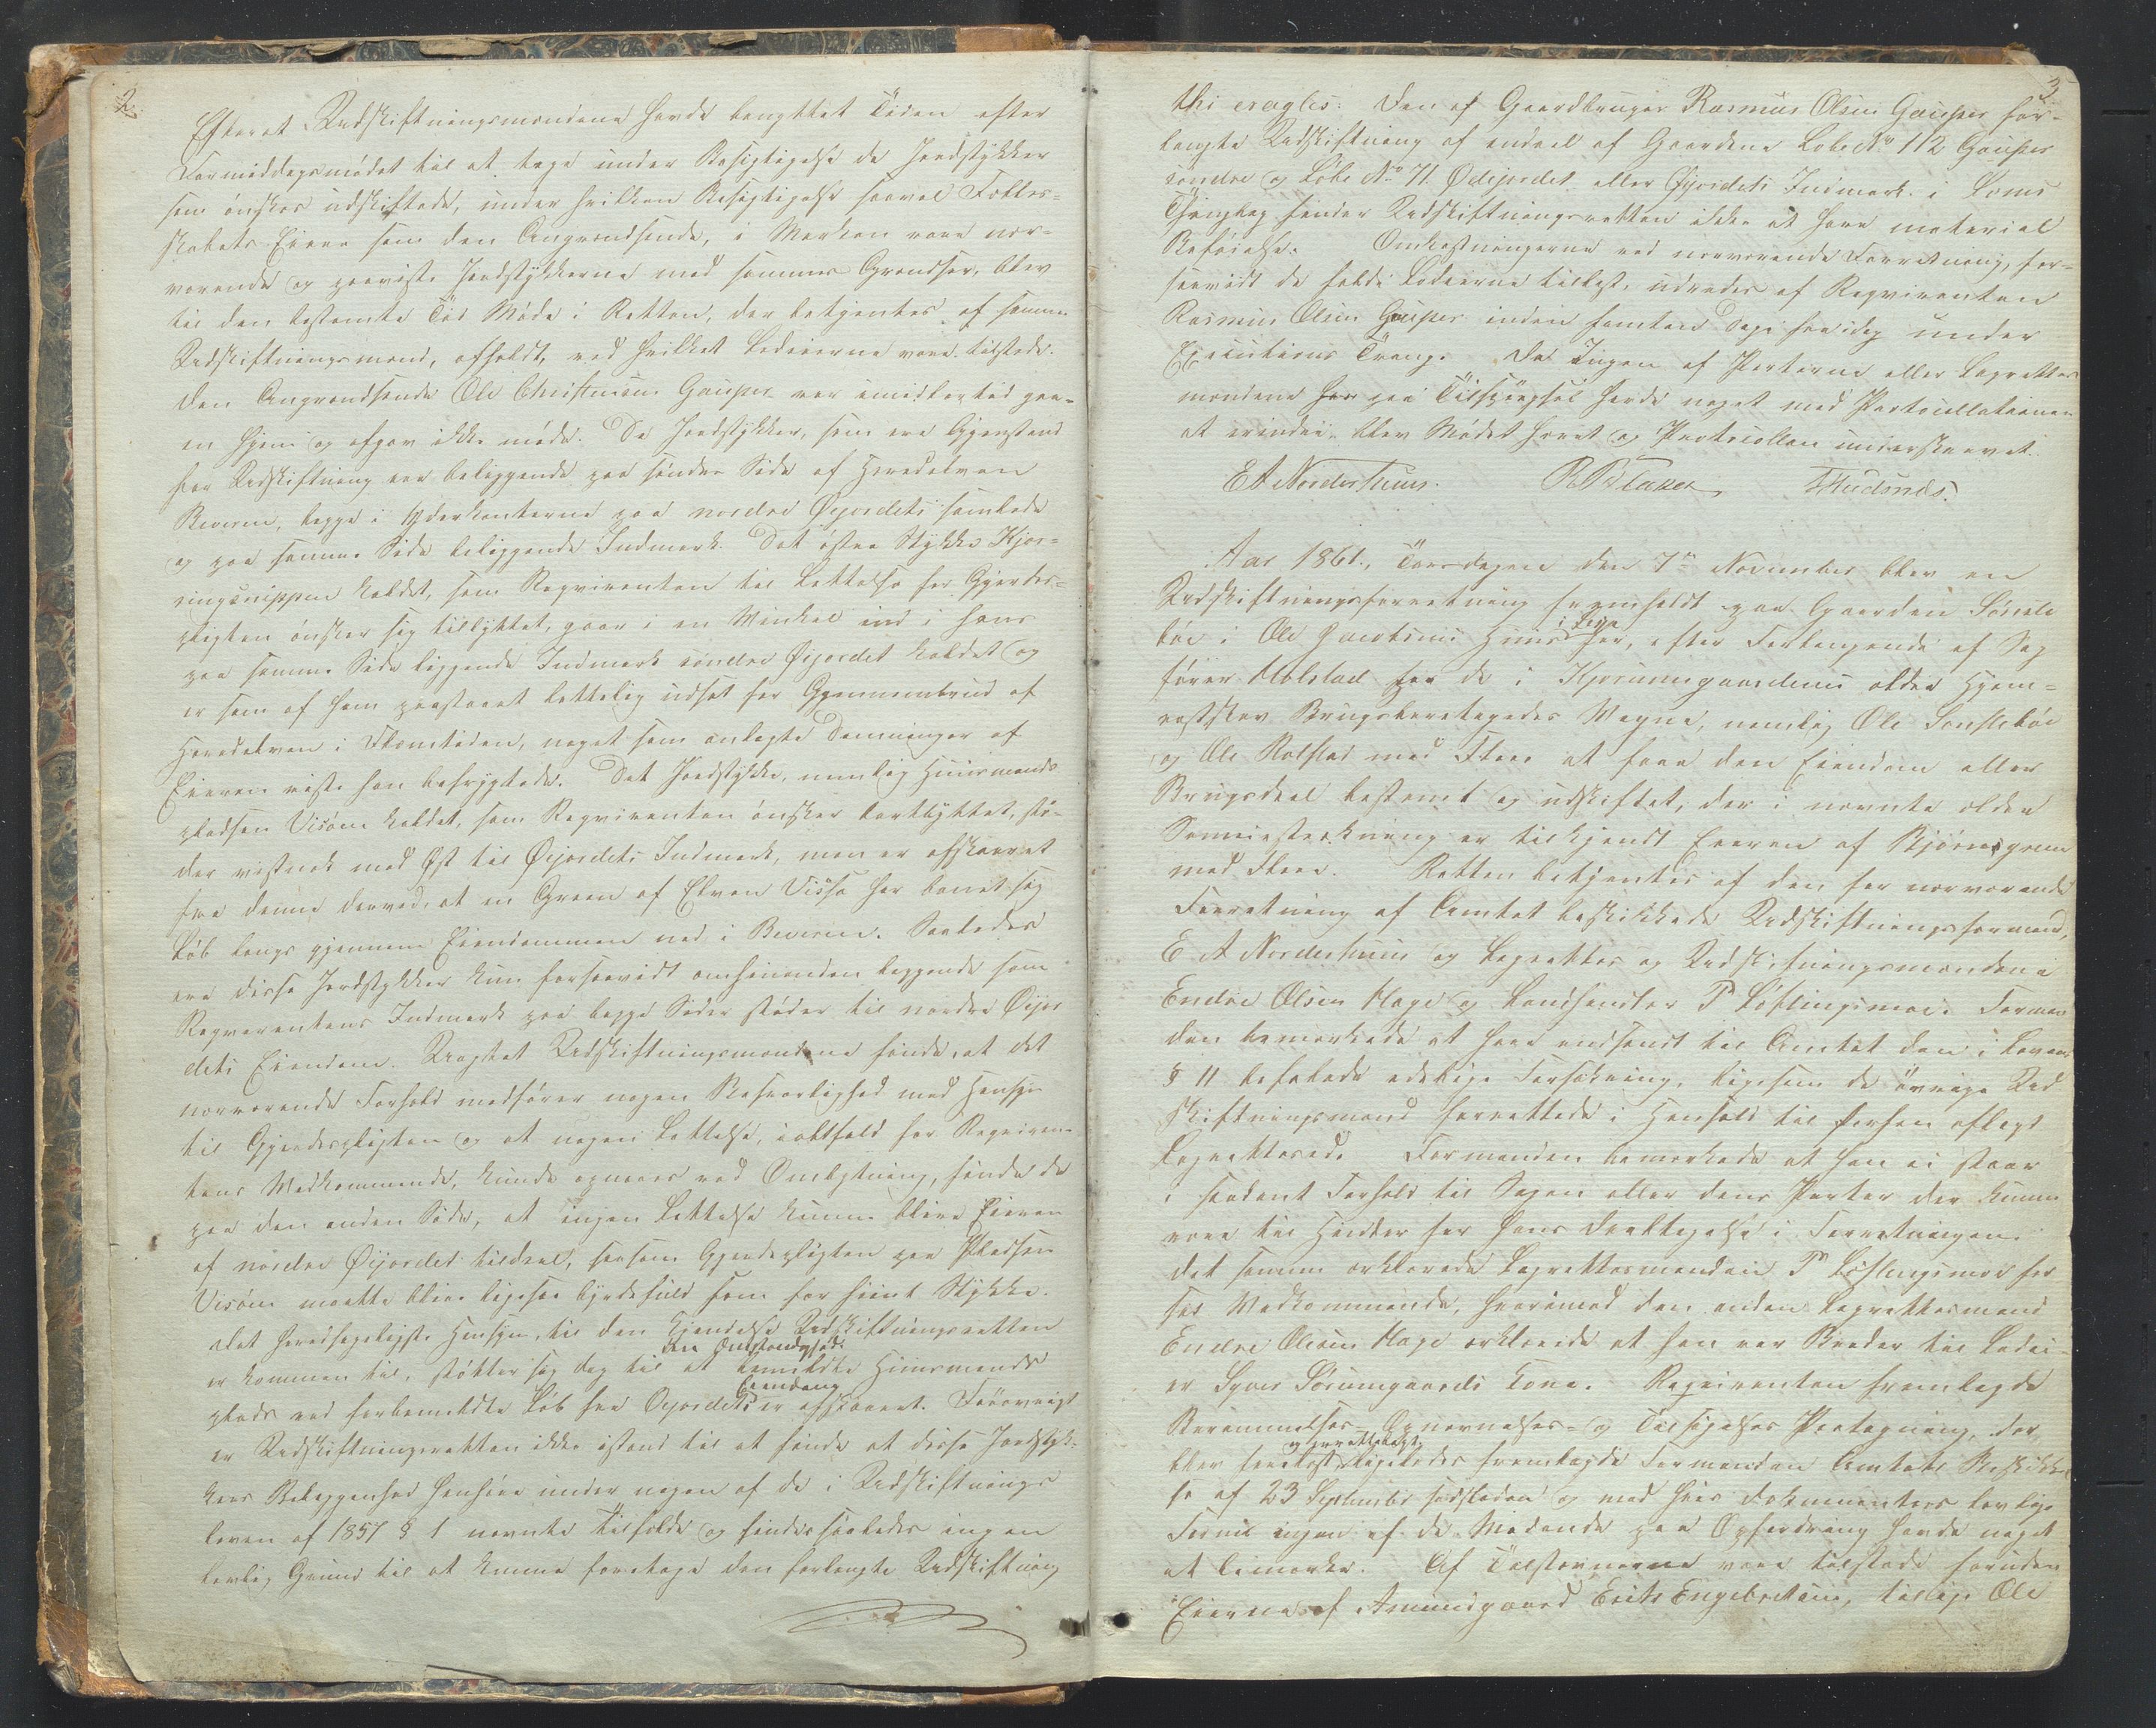 2.
Efterat Udskiftningsmændene havde benyttet Tiden efter
Formiddagsmødet til at tage under Besigtigelse de Jordstykker
som ønskes udskiftede, under hvilken Besigtigelse saavel Fælles-
skabets Eiere som den Angrændsende, i Marken vare nær-
værende og paaviste Jordstykkerne med sammes Grændser, blev
til den bestemte Tid Møde i Retten, der betjentes af samme
Udskiftningsmænd, afholdt, ved hvilket Lodeierne vare tilstede.
Den Angrændsende Ole Christensen Gaupar var imidlertid gaa-
en hjem og afgav ikke møde. De Jordstykker, som ere Gjenstand
for Udskiftning ere beliggende paa søndre Side af Hovedelven
Bæveren, begge i Yderkanterne paa nordre Øijordets samlede
og paa samme Side beliggende Indmark. Det østre Stykke Kjør-
ringsnippen kaldet, som Reqvirenten til Lettelse for Gjerdes-
pligten ønsker sig tilbyttet, gaar i en Vinkel ind i hans
paa samme Side liggende Indmark søndre Øijordet kaldet og
er som af ham paastaaet lettelig udsat for Gjennembrud af
Hovedelven i Flomtiden, noget som anlagte Dæmninger af
Eieren viste han befrygtede. Det Jordstykke, nemlig Huusmands
pladsen Visøen kaldet, som Reqvirenten ønsker bortbyttet, stø-
der vistnok mod Øst til Øijordets Indmark, men er afskaaret
fra denne derved, at en Green af Elven Visa har banet sig
Løb langs gjennem Eiendommen ned i Bæveren. Saaledes
ere disse Jordstykker kun forsaavidt omhinanden liggende som
Reqvirentens Indmark paa begge Sider støder til nordre Øijor
dets Eiendom. Uagtet Udskiftningsmændene finde, at det
nærværende Forhold medfører nogen Besværlighed med Hensyn
til Gjerdespligten og at nogen Lettelse, ialtfald for Reqviren-
tens Vedkommende, kunde opnaaes ved Ombytning, finde de
paa den anden Side, at ingen Lettelse kunne blive Eieren
af nordre Øijordet tildeel, saasom Gjerdepligten paa Pladsen
Visøen maatte blive ligesaa byrdefuld som for hiint Stykke.
Det hovedsageligste Hensyn, til den Kjendelse Udskiftningsretten
den Omstændighed
er kommen til, støtter sig dog til at bemeldte Huusmands
Eiendom
plads ved forbemeldte Løb fra Øijordets er afskaaret. Forøvrigt
er Udskiftningsretten ikke istand til at finde at disse Jordstyk-
kers Beliggenhed henhøre under nogen af de i Udskiftnings
loven af 1857 § 1 nævnte Tilfælde og findes saaledes ingen
lovlig Grund til at kunne foretage den forlangte Udskiftning
3
thi eragtes: Den af Gaardbruger Rasmus Olsen Gaupar for-
langte Udskiftning af endeel af Gaardene Løbe No 112 Gaupar
søndre og Løbe No 71 Ødejordet eller Øijordets Indmark i Loms
Thinglag finder Udskiftningsretten ikke at have materiel
Beføielse. Omkostningerne ved nærværende Forretning, for-
saavidt de falde Lodeierne tillast, udredes af Reqvirenten
Rasmus Olsen Gaupar inden femten Dage fra idag under
Executions Tvang. Da Ingen af Parterne eller Lagrettes
mændene paa Tilspørgsel havde noget med Protocollationen
at erindre, blev Mødet hævet og Protocollen underskrevet.
E A Norderhuus. R Blakar
Aar 1861, Torsdagen den 7de November blev en
Udskiftningsforretning fremholdt paa Gaarden Sønste
i Leye
bøe i Ole Jacobsens Huus her, efter Forlangende af Sag
fører Molstad paa de i Kjørumgaardenes Olden Hjem-
rastskov Brugsberettigedes Vegne, nemlig Ole Sønstebøe
og Ole Rolstad med Flere at faae den Eiendom eller
Brugsdeel bestemt og udskiftet, der i nævnte Olden
Sameiestrækning er tilkjendt Eieren af Bjørnsgreen
med Flere. Retten betjentes af den for nærværende
Forretning af Amtet beskikkede Udskiftningsformand,
E A Norderhuus og Lagrettes og Udskiftningsmændene
Endre Olsen Hage og Landhandler P Løftingsmoe. Forman
den bemærkede at have indsendt til Amtet den i Lovens
§ 11 befalede edelige Forsikring, ligesom de øvrige Ud
skiftningsmænd henrettede i Henhold til forhen aflagt
Lagrettesed. Formanden bemærkede at han ei staar
i saadant Forhold til Sagen eller dens Parter der kunne
være til Hinder for hans Deeltagelse i Forretningen.
Det samme erklærede Lagrettesmanden P Løftingsmoe for
sit Vedkommende, hvorimod den anden Lagrettesmand
Endre Olsen Hage erklærede at han var Broder til Lodei-
er Syver Sørumgaards Kone. Reqvirenten fremlagde
Berammelses- Opnævnelses- og Tilsigelses Paategning, der
og irettelagt
blev forelæst, ligeledes fremlagde Formanden Amtets Beskikkel
se af 23 September sidstleden og mod hvis Dokumenters lovlige
Form ingen af de Mødende paa Opfordring havde noget
at bemærke. Af Tilstævnerne vare tilstede foruden
Eierne af Amundgaard Erik Engebretsen, tillige Ole